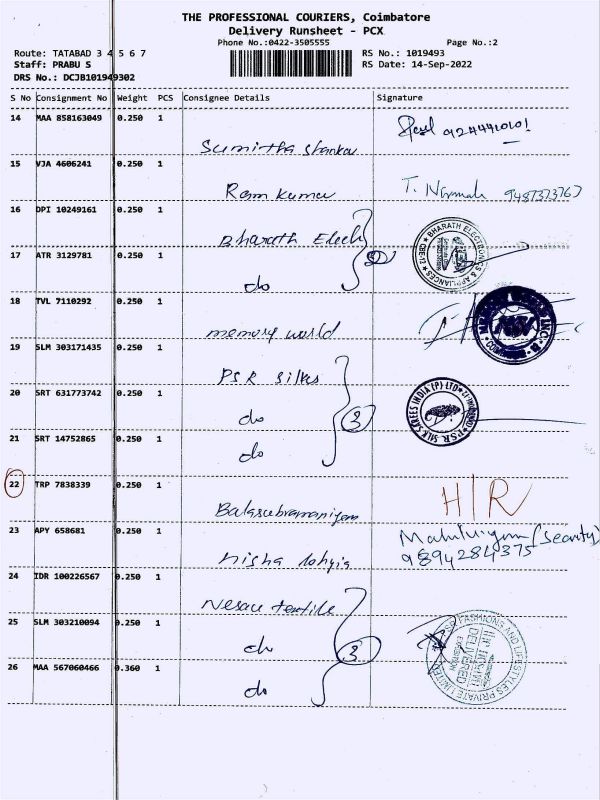 THE PROFESSIONAL COURIERS, Coimbatore
Delivery Runsheet - PCX
Phone No.:0422-3505555
Page No.:2
Route: TATABAD 3 4 5 6 7
RS No.: 1019493
Staff: PRABU S
RS Date: 14-Sep-2022
DRS No.: DCJB101949302
S No Consignment No Weight PCS Consignee Details Signature
14 MAA 858163049 0.250 1
Sumitha Shankar
15 VJA 4606241 0.250 1
Ram Kumar T. Nirmala 9487373763
16 DPI 10249161 0.250 1
Bharath Elech
17 ATR 3129781 0.250 1
do 2
BHARATH ELECTRONICS & APPLIANCES
CBE-12
18 TVL 7110292 0.250 1
memory world
19 SLM 303171435 0.250 1
PSR Silks
20 SRT 631773742 0.250 1
do 3
P.S.R. SILK SAREES INDIA (P) LTD
21 SRT 14752865 0.250 1
do
22 TRP 7838339 0.250 1
Balasubramaniyam H/R
23 APY 658681 0.250 1
nisha (Security)
9894284375
24 IDR 100226567 0.250 1
Nesau textile
25 SLM 303210094 0.250 1
do 3
26 MAA 567060466 0.360 1
do
FASHIONS AND LIFESTYLES PRIVATE LIMITED
DELIVERED